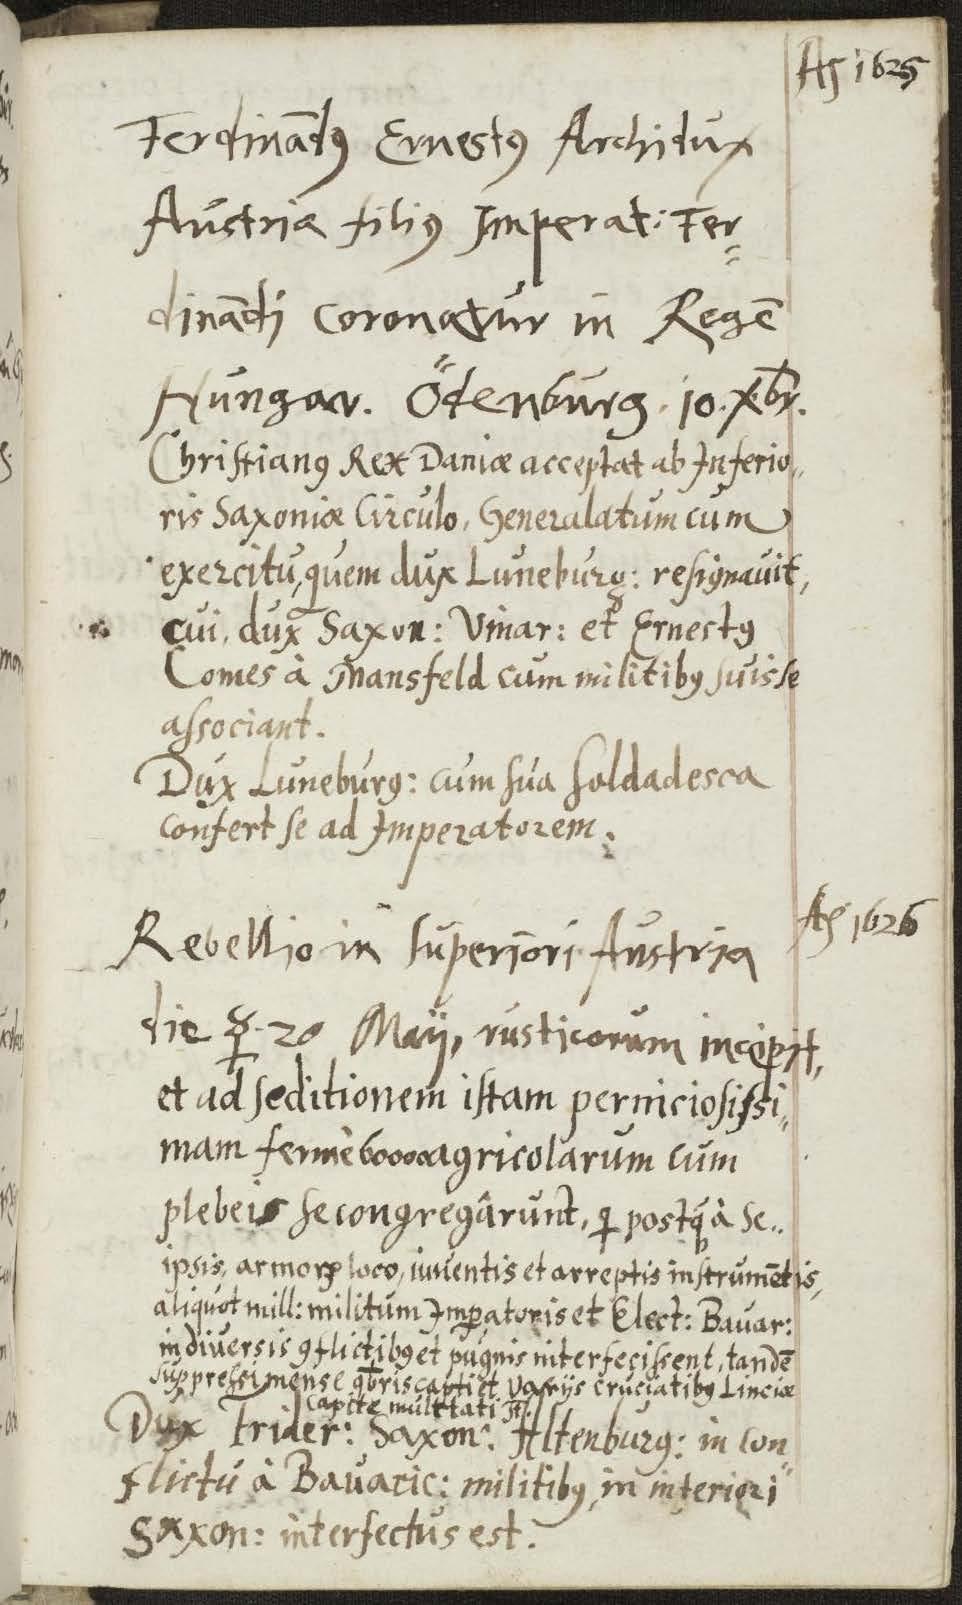 Aō 1625
Ferdinādꝰ Ernestꝰ Archidux
Austriæ filiꝰ Imperat: Fer=
dināndi coronatur in Regē
Hungar. Ödenburg. 10. Xbr.
Christianꝰ Rex Daniæ acceptat ab Inferio„
ris Saxoniæ Circulo, Generalatum cum
exercitu, quem dux Luneburg: resignavit,
cui, dux Saxon: Vinar: et Ernestꝰ
Comes à Mansfeld cum militibꝰ suis se
associant.
Dux Luneburg: cum sua soldadesca
confert se ad Imperatorem.
Aō 1626
Rebellio in superiori Austria
die ☿. 20 Maij, rusticorum incipit,
et ad seditionem istam perniciosissi„
mam fermè 60000 agricolarum cum
plebeis se congregârunt, qi postq̃ à se„
ipsis, armorꝝ loco, inventis et arreptis instrumētis,
aliquot mill: militum Imꝑatoris et Elect: Bavar:
in diversis ꝯflictibꝰ et pugnis interfecissent, tandē
suppressi mense 9bris capti et varijs cruciatibꝰ Linciæ
capite multtati st.
Dux Frider: Saxon: Altenburg: in con„
flictu à Bavaric: militibꝰ, in interiori
Saxon: interfectus est.